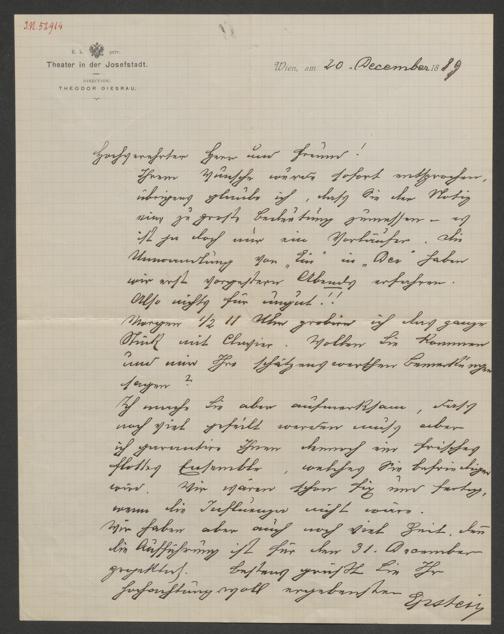 J.N. 58964
K. k. priv.
Theater in der Josefstadt.
DIRECTION:
THEODOR GIESRAU.
Wien, am 20. December 1889
Hochverehrter Herr und Freund!
Ihrem Wunsche wurde sofort entsprochen,
übrigens glaube ich, dass Sie der Notiz
eine zu grosse Bedeutung zumessen – es
ist ja doch nur ein Vorläufer. Die
Umwandlung von „Ein" in „Der" haben
wir erst vorgestern Abends erfahren.
Also nichts für ungut!!
Morgen 1/2 11 Uhr probire ich das ganze
Stück mit Clavier. Wollen Sie kommen
und mir Ihre schätzenswerthen Bemerkungen
sagen?
Ich mache Sie aber aufmerksam, dass
noch viel gefeilt werden muss aber
ich garantire Ihnen dennoch ein frisches
flottes Ensemble, welches Sie befriedigen
wird. Wir wären schon fix und fertig,
wenn die Influenza nicht wäre.
Wir haben aber auch noch viel Zeit, denn
die Aufführung ist für den 31. December
projektirt. Bestens grüsst Sie Ihr
hochachtungsvoll ergebenster Epstein